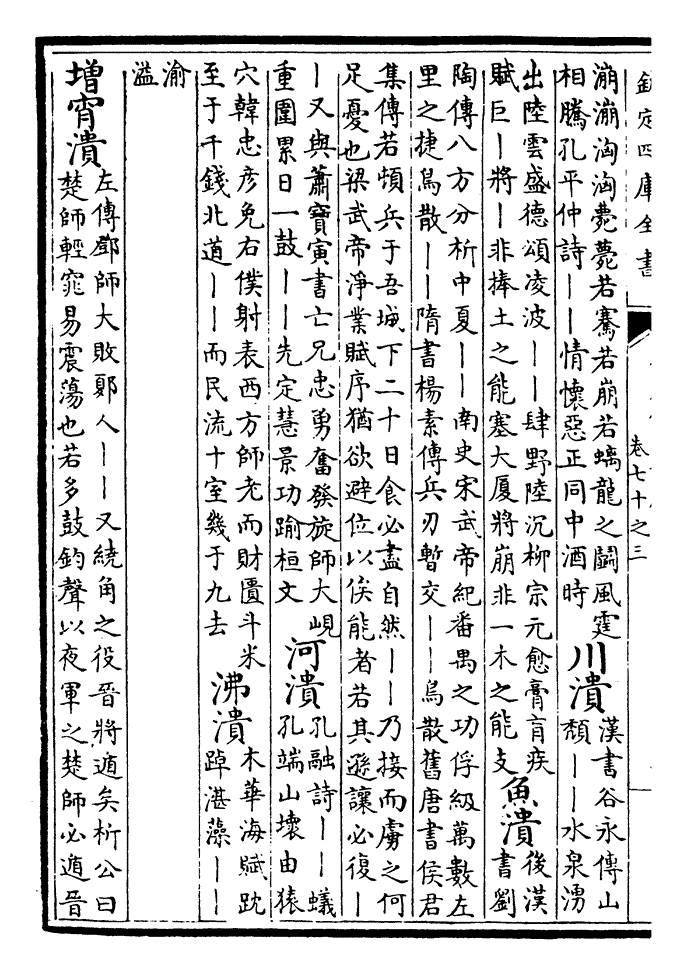 欽定四庫全書
卷七十之三
漰漰淘淘薨薨若騫若崩若螭龍之鬭風霆
相騰孔平仲詩丨丨情懷惡正同中酒時
川潰
漢書谷永傳山
頹丨丨水泉湧
出陸雲盛德頌凌波丨丨肆野陸沉柳宗元愈膏肓疾
賦巨丨將丨非捧土之能塞大厦將崩非一木之能支
魚潰
後漢
書劉
陶傳八方分析中夏丨丨南史宋武帝紀番禺之功俘級萬數左
里之捷鳥散丨丨隋書楊素傳兵刃暫交丨丨鳥散舊唐書侯君
集傳若頓兵于吾城下二十日食必盡自然丨丨乃接而虜之何
足憂也梁武帝淨業賦序猶欲避位以俟能者若其遜讓必復丨
丨又與蕭寶寅書亡兄忠勇奮發旋師大峴
重圍累日一鼓丨丨先定慧景功踰桓文
河潰
孔融詩丨丨蟻
孔端山壞由猿
穴韓忠彦免右僕射表西方師老而財匱斗米
至于千錢北道丨丨而民流十室幾于九去
沸潰
木華海賦
踔湛藻丨丨
渝
溢
增宵潰
左傳鄧師大敗鄾人丨丨又繞角之役晉將遁矣析公曰
楚師輕窕易震蕩也若多鼓鈞聲以夜軍之楚師必遁晉